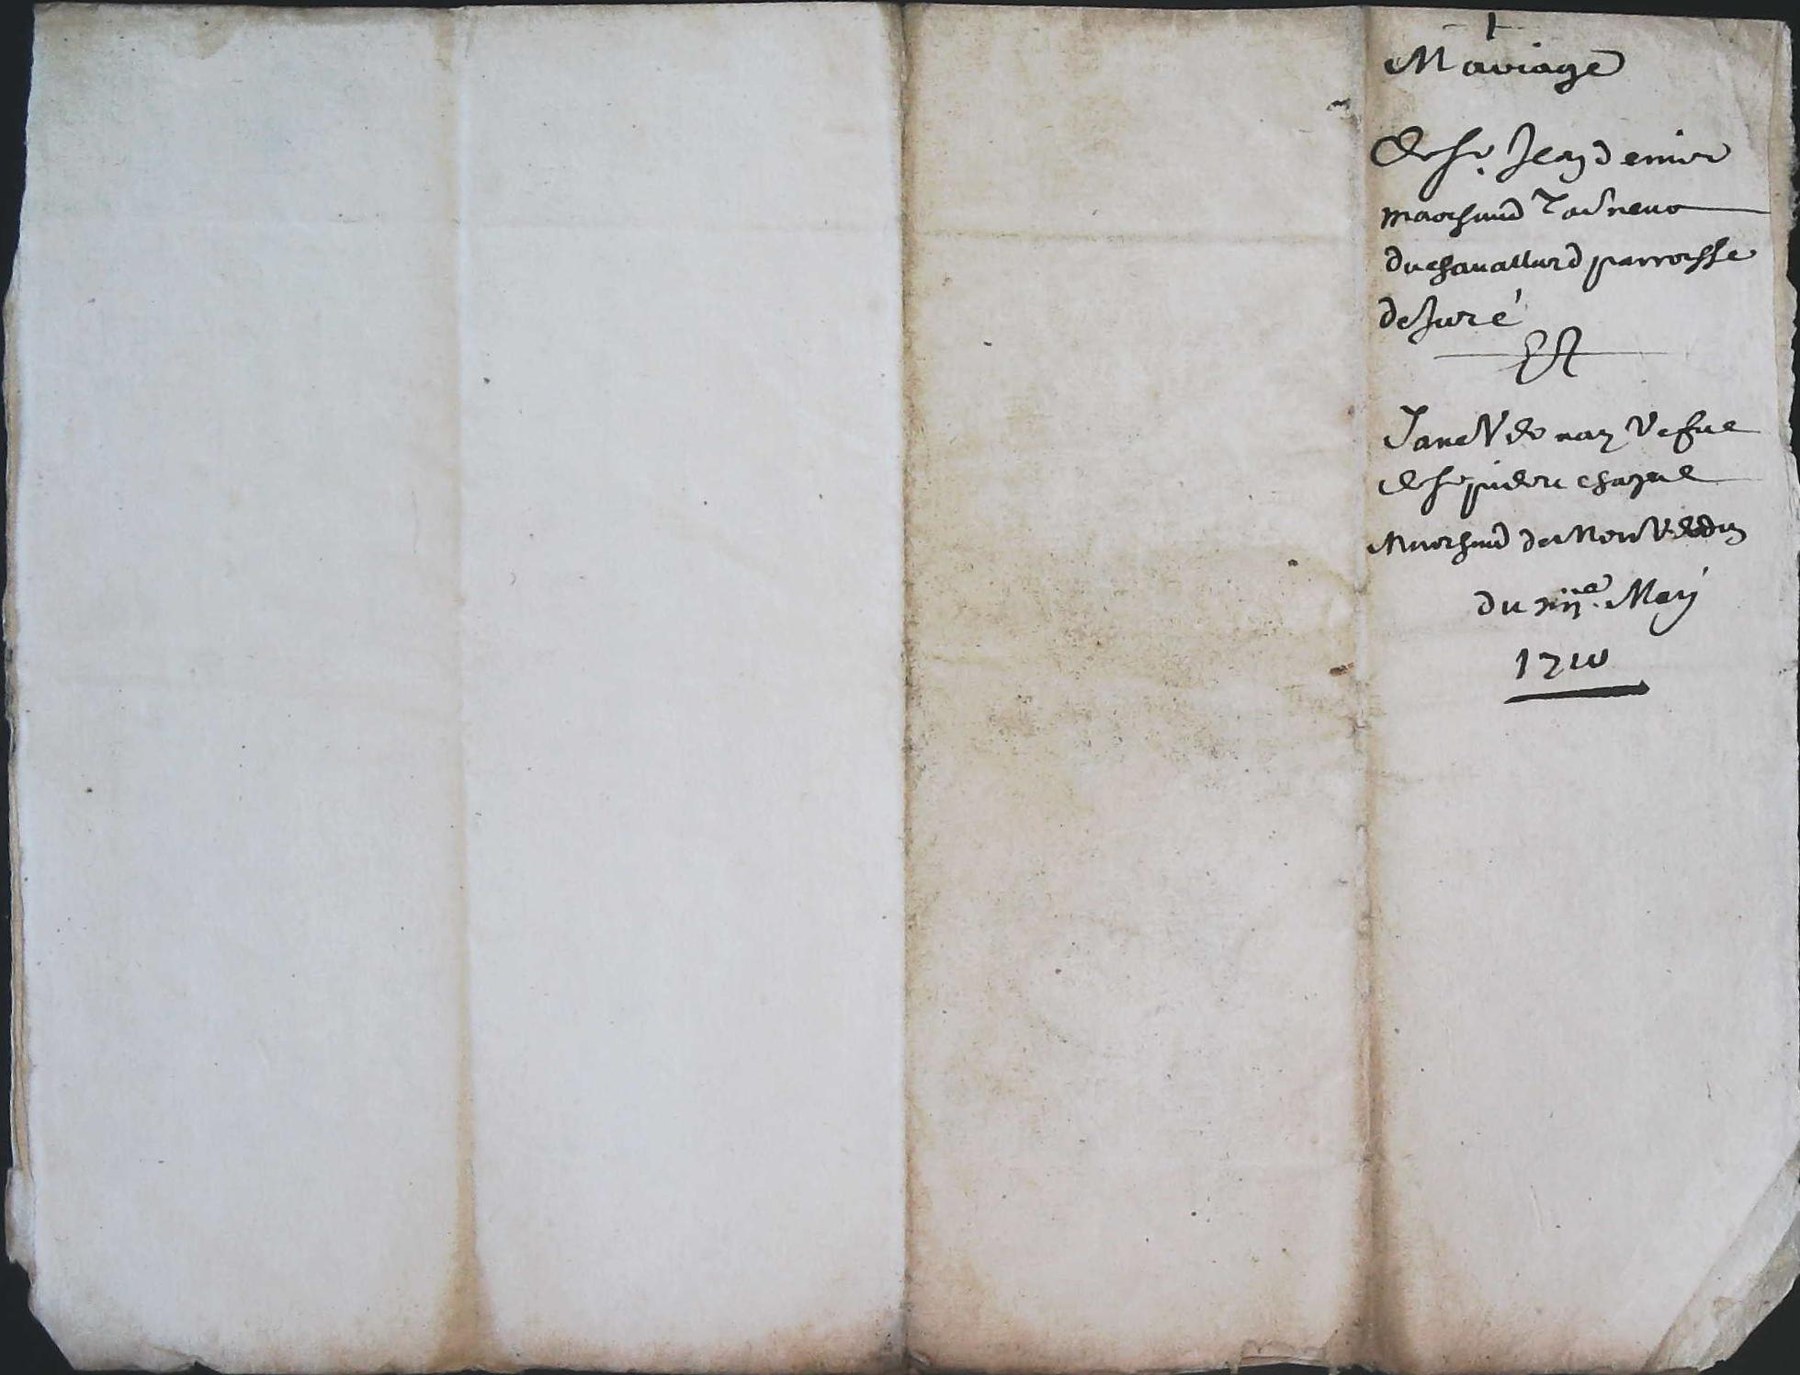 Mariage
De sr. Jean denier
marchand Tanneur
du chauallard parroisse
de Juré
Et
Jane Vernay Vefue
de sr pierre chazel
Marchand de
du xiie. May
1710